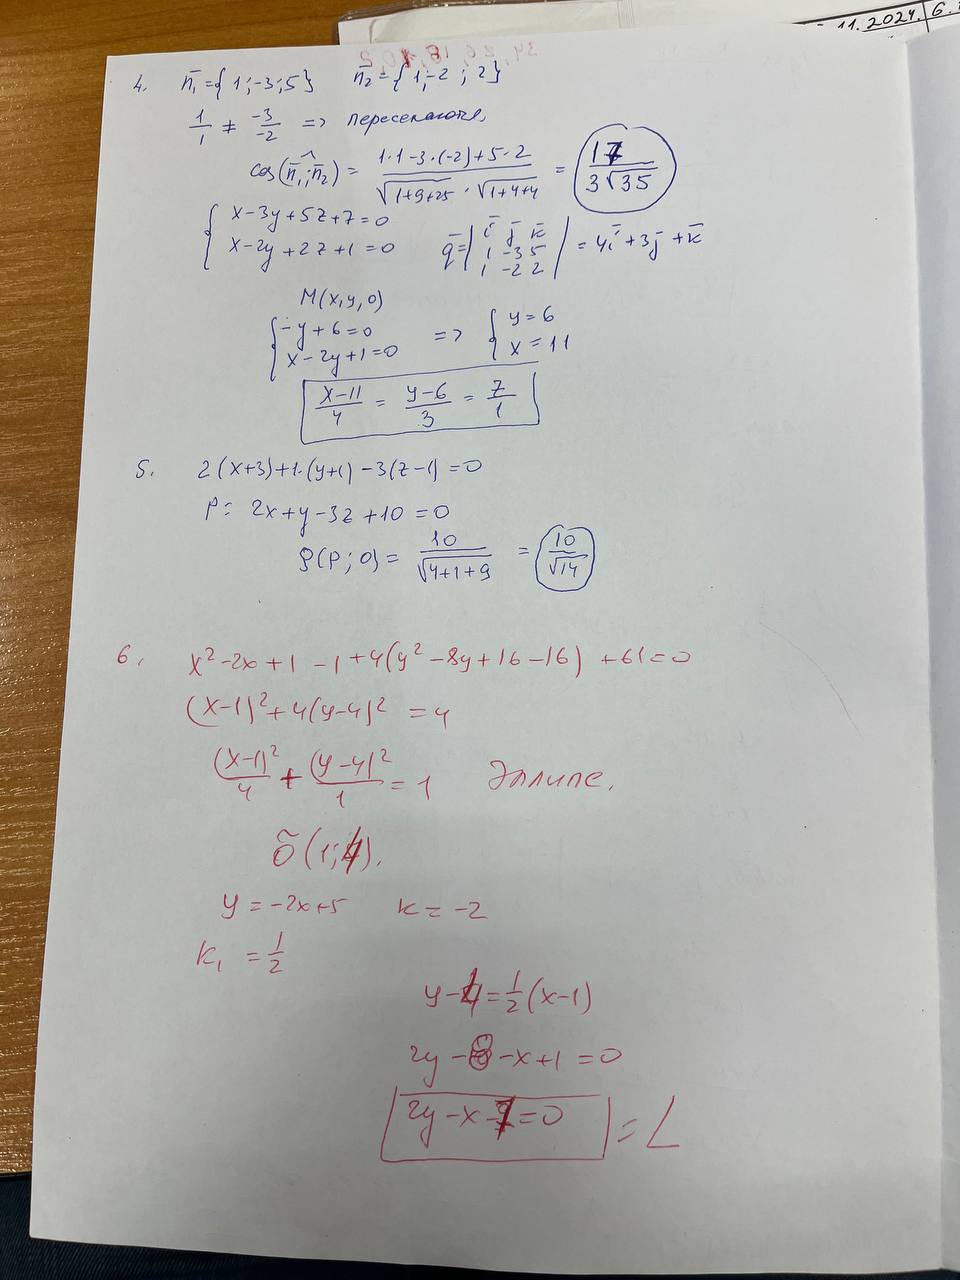 11.2024 6.
34, 26, 18, 10, 2
4. n̄₁={1;-3;5} n̄₂={1;-2;2}
1/1 ≠ -3/-2 => пересекаются
cos(n̄₁;n̄₂) = (1·1-3·(-2)+5·2)/(√(1+9+25)·√(1+4+4)) = 17/(3√35)
{ x-3y+5z+7=0
x-2y+2z+1=0 q̄=| ī j̄ k̄
1 -3 5
1 -2 2 | =4ī+3j̄+k̄
M(x,y,0)
{ -y+6=0 => { y=6
x-2y+1=0 x=11
(x-11)/4 = (y-6)/3 = z/1
5. 2(x+3)+1·(y+1)-3(z-1)=0
P: 2x+y-3z+10=0
ρ(P;0) = 10/√(4+1+9) = 10/√14
6. x²-2x+1-1+4(y²-8y+16-16)+61=0
(x-1)²+4(y-4)²=4
(x-1)²/4 + (y-4)²/1 = 1 Эллипс.
Õ(1;4).
y=-2x+5 k=-2
k₁=1/2
y-4=1/2(x-1)
2y-8-x+1=0
2y-x-7=0 =L